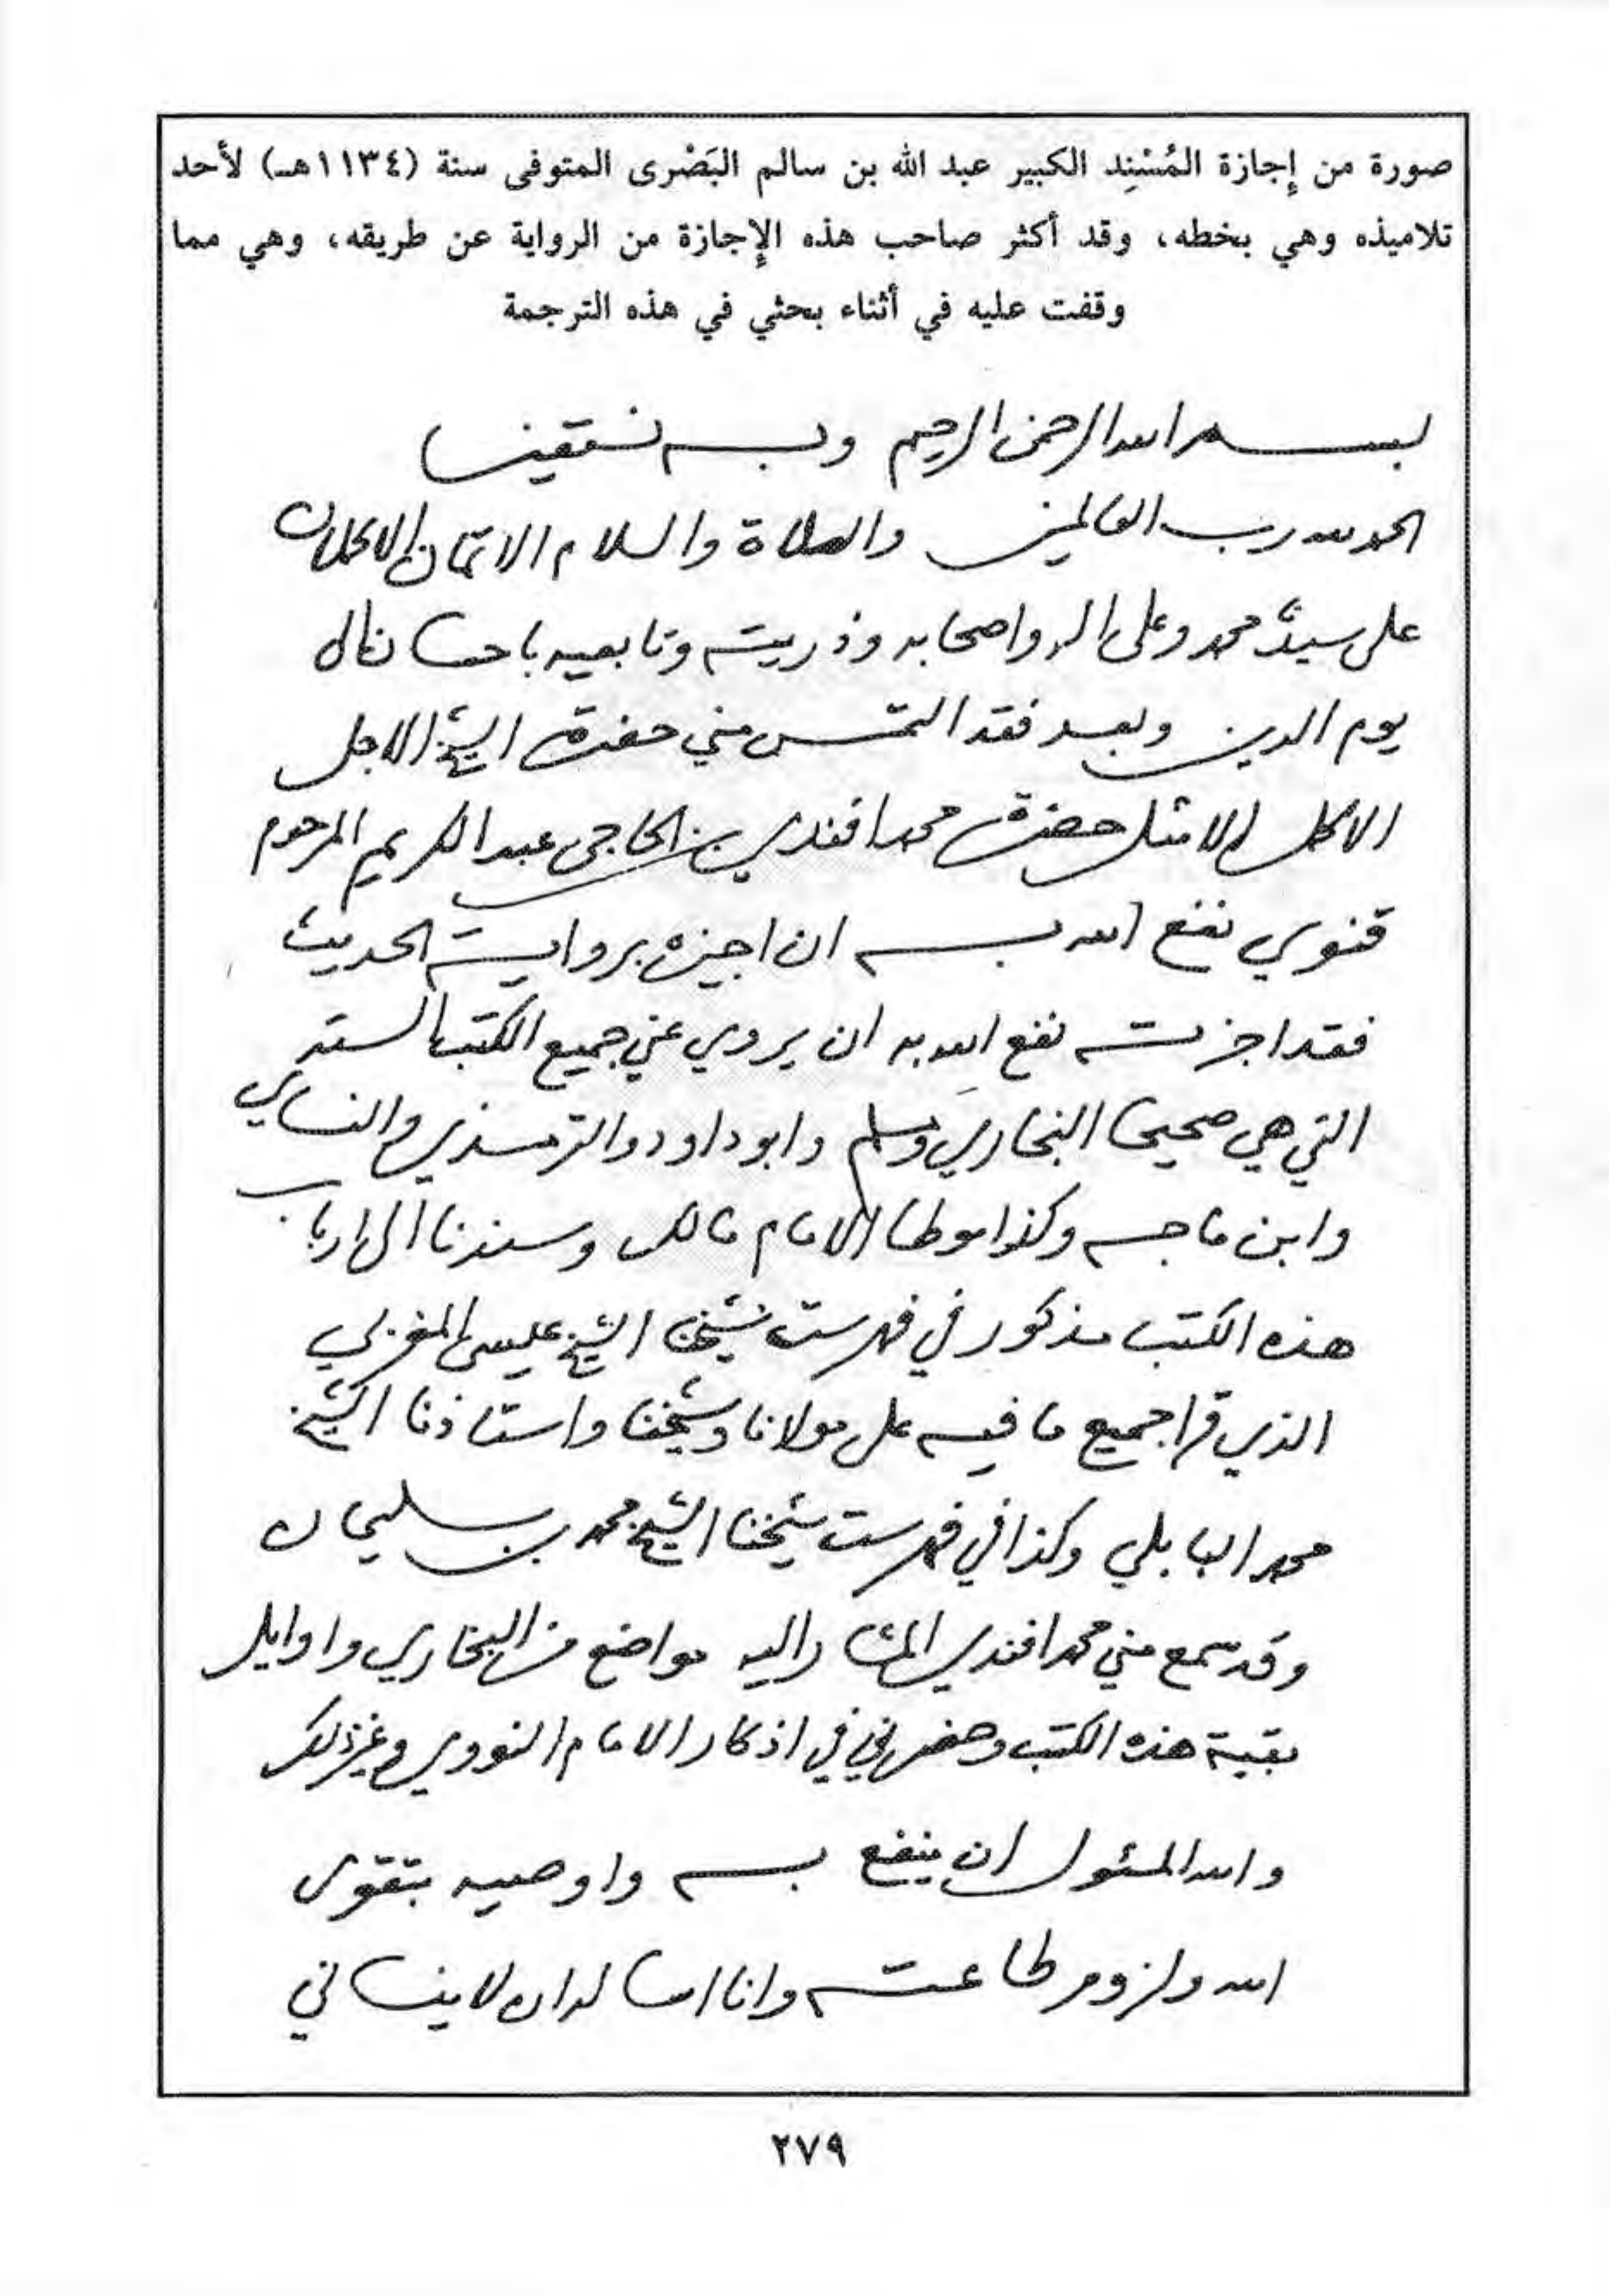 صورة من إجازة المُسْنِد الكبير عبد الله بن سالم البَصْرى المتوفى سنة (١١٣٤هـ) لأحد
تلاميذه وهي بخطه، وقد أكثر صاحب هذه الإجازة من الرواية عن طريقه، وهي مما
وقفت عليه في أثناء بحثي في هذه الترجمة
بسم الله الرحمن الرحيم وبه
الحمد لله رب العالمين والصلاة والسلام الاتمان الاكملان
على سيدنا محمد وعلى اله واصحابه وذريته وتابعيه باحسان الى
يوم الدين وبعد فقد التمس مني حضرة الشيخ الاجل
الاكمل الامثل حضرة محمد افندي بن الحاجى عبد الكريم المرحوم
قنوي نفع الله به ان اجيزه برواية الحديث
فقد اجزته نفع الله به ان يروي عني جميع الكتب الستة
التي هي صحيحا البخاري ومسلم وابو داود والترمذي والنساي
وابن ماجه وكذا موطا الامام مالك وسندنا الى ارباب
هذه الكتب مذكور في فهرست شيخنا الشيخ عيسى المغربي
الذي قرا جميع ما فيه على مولانا وشيخنا واستاذنا الشيخ
محمد البابلي وكذا في فهرست شيخنا الشيخ محمد بن سليمان
وقد سمع مني محمد افندي المشار اليه مواضع من البخاري واوايل
بقية هذه الكتب وحضرني في اذكار الامام النووي وغير ذلك
والله المسئول ان ينفع به واوصيه بتقوى
الله ولزوم طاعته وانا اساله ان لا ينساني
٢٧٩